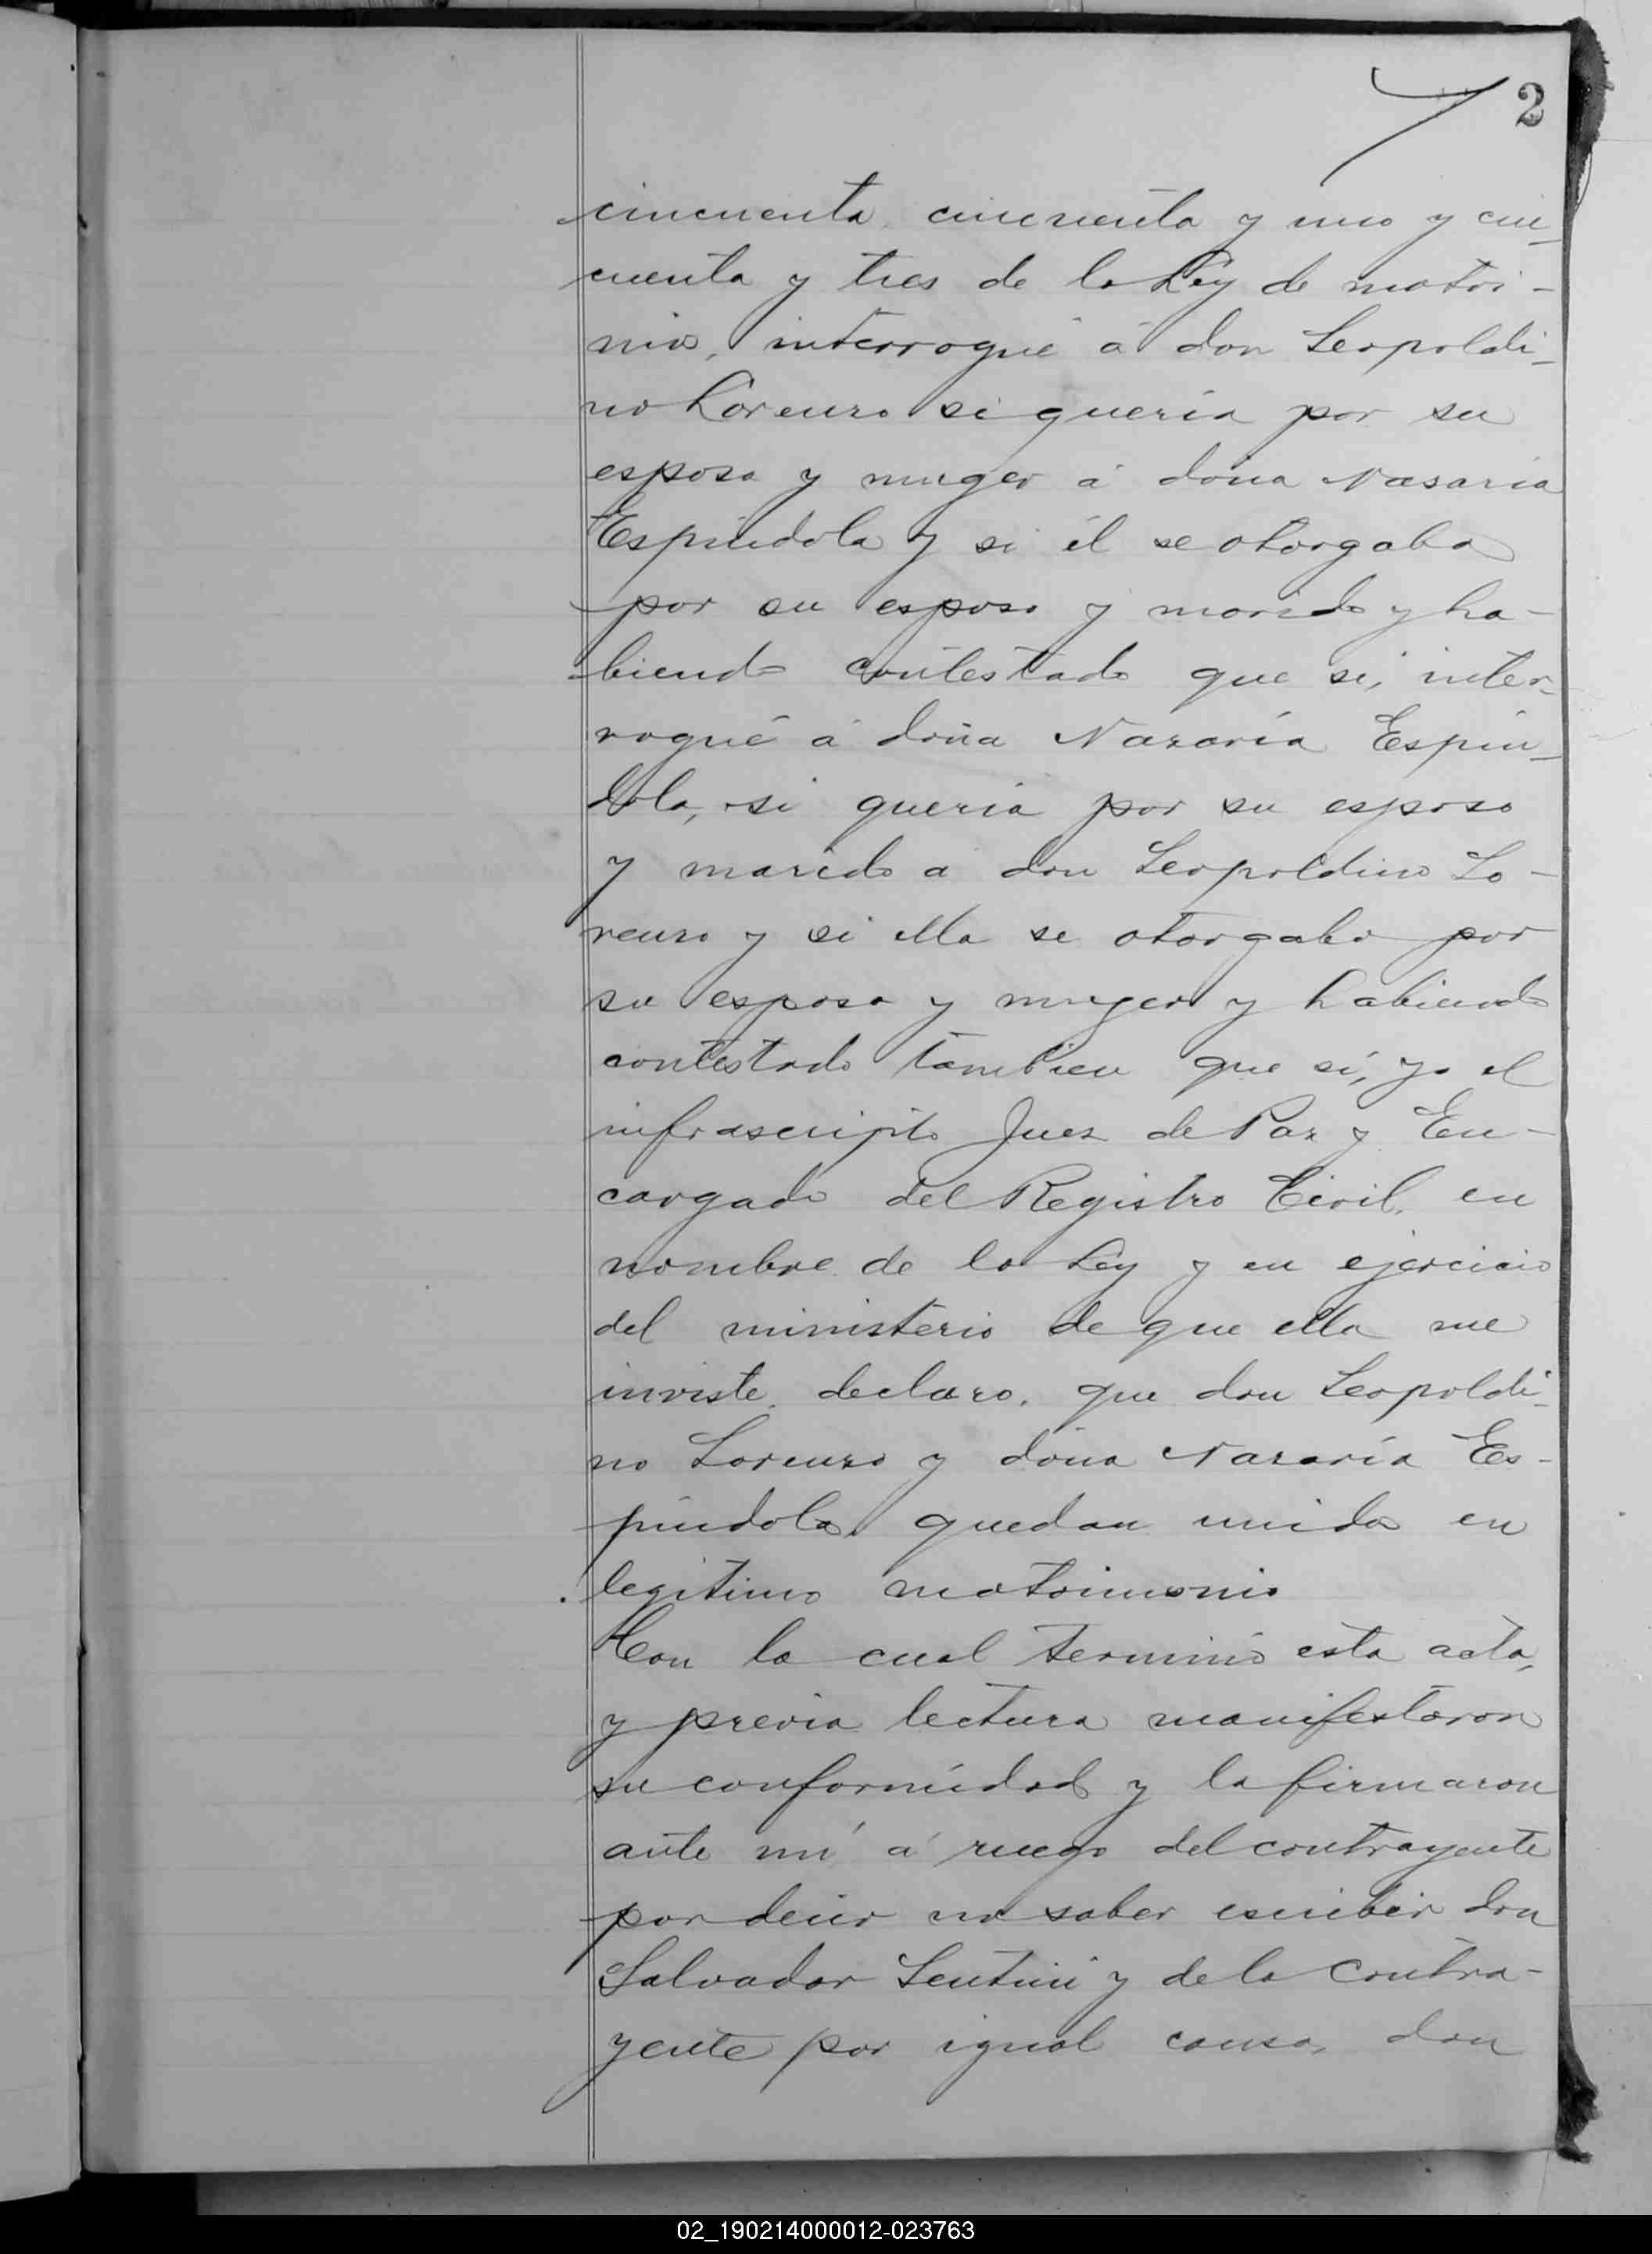 2
cincuenta, cincuenta y uno y cin-
cuenta y tres de la Ley de matri-
nio, interrogué á don Leopoldi-
no Lorenzo si quería por su
esposa y muger á doña Nasaria
Espíndola y si él se otorgaba
por su esposo y marido y ha-
biendo contestado que si, inter-
rogué á doña Nazaría Espín-
dola, si quería por su esposo
y marido a don Leopoldino Lo-
renzo y si ella se otorgaba por
su esposa y muger y habiendo
contestado tambien que sí, yo el
infrascripto Juez de Paz y En-
cargado del Registro Civil, en
nombre de la Ley y en ejercicio
del ministerio de que ella me
inviste, declaro, que don Leopoldi-
no Lorenzo y doña Nazaría Es-
píndola, quedan unidos en
legitimo matrimonio
Con lo cual terminó esta acta,
y previa lectura manifestaron
su conformidad y la firmaron
ante mí á ruego del contrayente
por decir no saber escribir don
Salvador Sentini y de la contra-
yente por igual causa, don
02_190214000012-023763